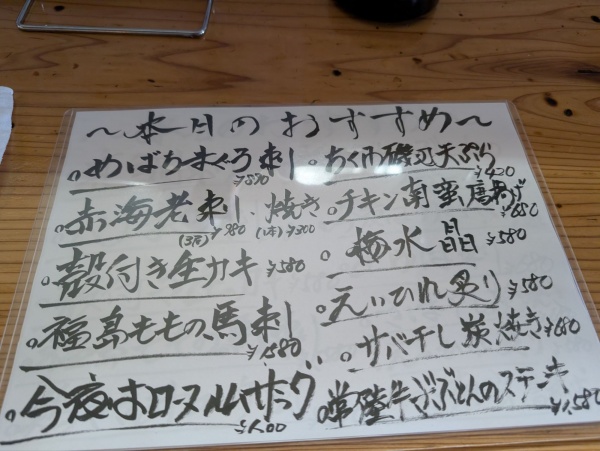 〜本日のおすすめ〜
めばちまぐろ刺し
¥890
赤海老刺し、焼き
(3尾) ¥980 (1本) ¥300
殻付き生カキ ¥580
福島ももの、馬刺し
¥1,880
今夜はロースハムザッグ
ちくわ磯辺天ぷら
¥420
チキン南蛮唐揚げ
¥680
梅水晶 ¥580
えいひれ炙り ¥580
サバ干し炭焼き ¥680
常陸牛ぶぶとんのステーキ
¥1,580